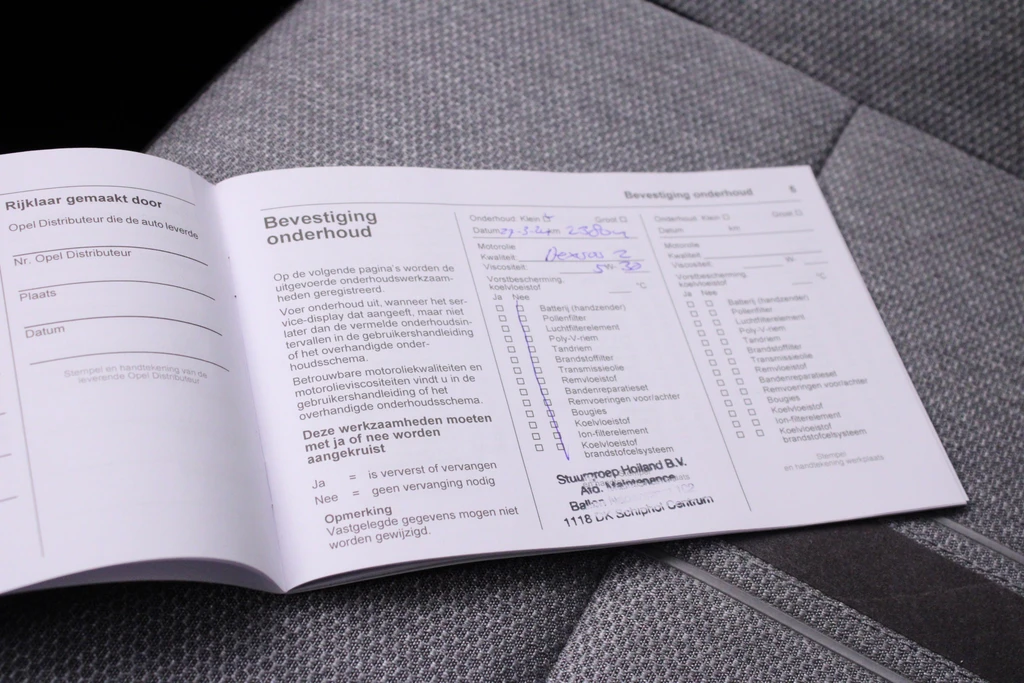 Rijklaar gemaakt door
Opel Distributeur die de auto leverde
Nr. Opel Distributeur
Plaats
Datum
Stempel en handtekening van de
leverende Opel Distributeur
Bevestiging
onderhoud
Op de volgende pagina's worden de
uitgevoerde onderhoudswerkzaam-
heden geregistreerd.
Voer onderhoud uit, wanneer het ser-
vice-display dat aangeeft, maar niet
later dan de vermelde onderhoudsin-
tervallen in de gebruikershandleiding
of het overhandigde onder-
houdsschema.
Betrouwbare motoroliekwaliteiten en
motorolieviscositeiten vindt u in de
gebruikershandleiding of het
overhandigde onderhoudsschema.
Deze werkzaamheden moeten
met ja of nee worden
aangekruist
Ja = is ververst of vervangen
Nee = geen vervanging nodig
Opmerking
Vastgelegde gegevens mogen niet
worden gewijzigd.
Bevestiging onderhoud
Onderhoud: Klein Groot
Datum km
Motorolie
Kwaliteit Dexos 2
Viscositeit 5W-30
Vorstbescherming
koelvloeistof °C
Ja Nee
Batterij (handzender)
Pollenfilter
Luchtfilterelement
Poly-V-riem
Tandriem
Brandstoffilter
Transmissieolie
Remvloeistof
Bandenreparatieset
Remvoeringen voor/achter
Bougies
Koelvloeistof
Ion-filterelement
Koelvloeistof
brandstofcelsysteem
Stuurgroep Holland B.V.
Afd. Maintenance
1118 DK Schiphol Centrum
Onderhoud: Klein Groot
Datum km
Motorolie
Kwaliteit
Viscositeit W-
Vorstbescherming
koelvloeistof °C
Ja Nee
Batterij (handzender)
Pollenfilter
Luchtfilterelement
Poly-V-riem
Tandriem
Brandstoffilter
Transmissieolie
Remvloeistof
Bandenreparatieset
Remvoeringen voor/achter
Bougies
Koelvloeistof
Ion-filterelement
Koelvloeistof
brandstofcelsysteem
Stempel
en handtekening werkplaats